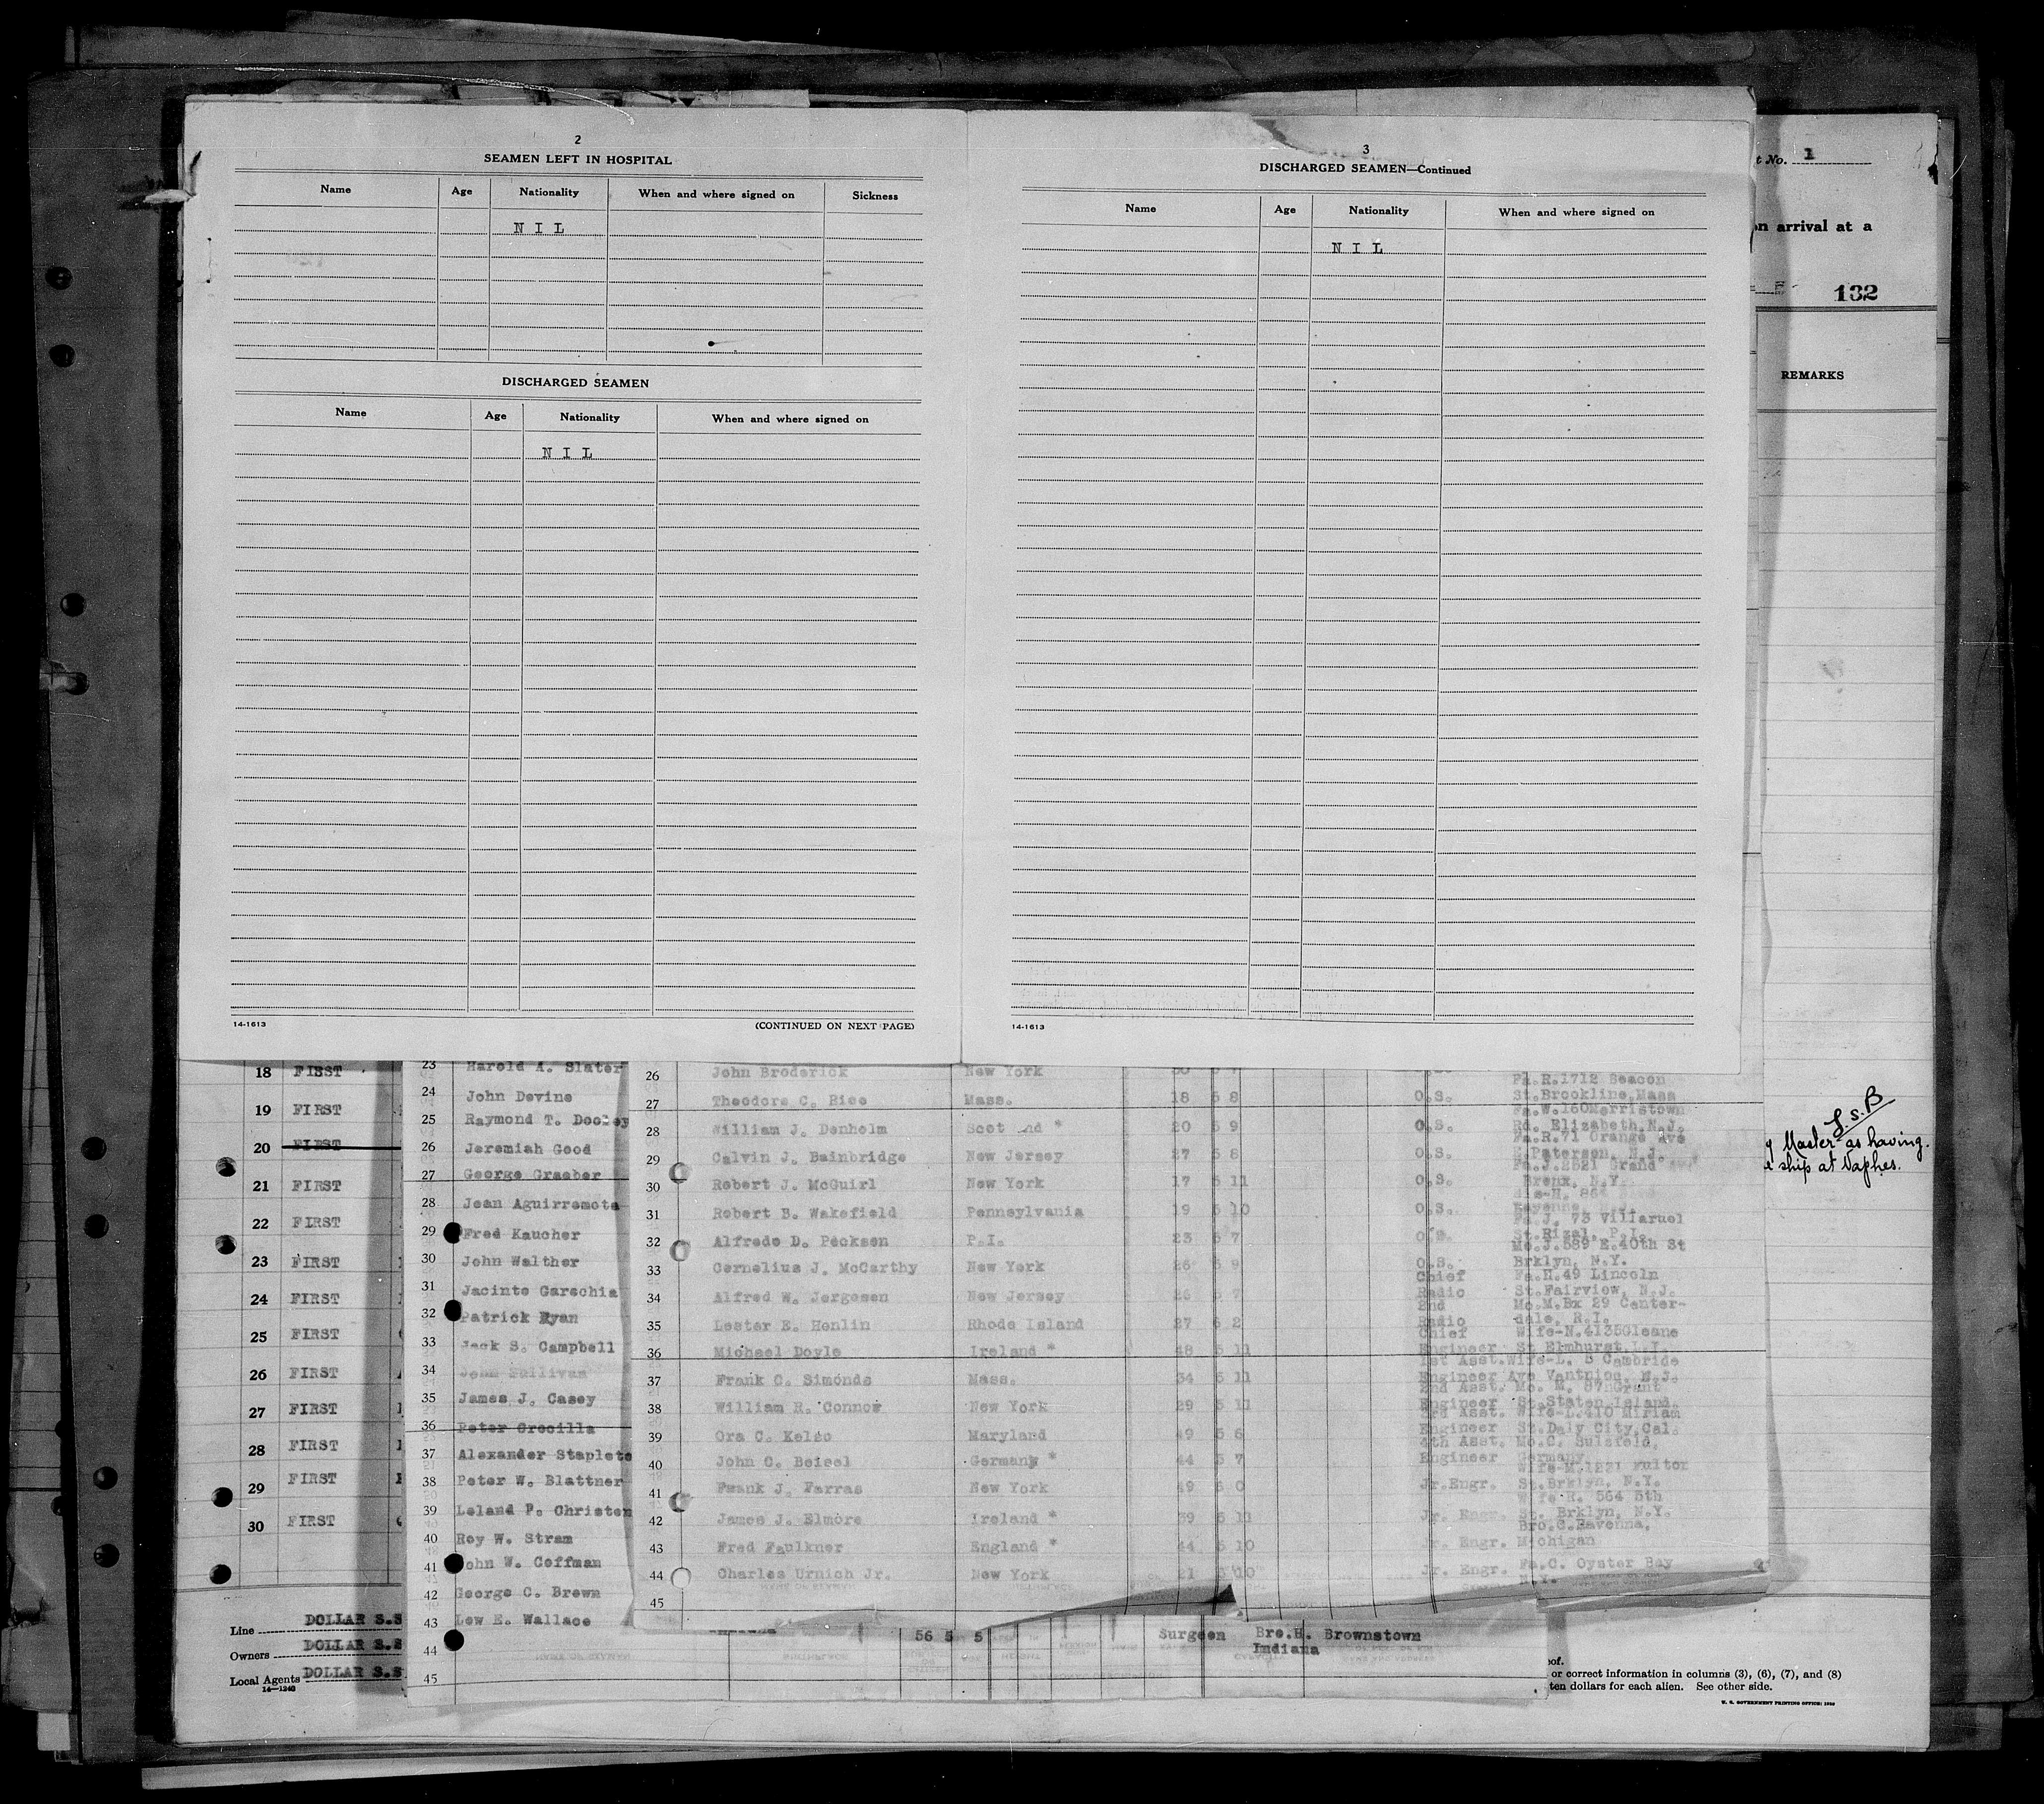 2
SEAMEN LEFT IN HOSPITAL
Name Age Nationality When and where signed on Sickness
N I L
DISCHARGED SEAMEN
Name Age Nationality When and where signed on
N I L
14-1613 (CONTINUED ON NEXT PAGE)
3
DISCHARGED SEAMEN—Continued
Name Age Nationality When and where signed on
N I L
14-1613
t No. 1
on arrival at a
132
REMARKS
L.S.B
y Master as having
ship at Naples.
18 FIRST
19 FIRST
20 FIRST
21 FIRST
22 FIRST
23 FIRST
24 FIRST
25 FIRST
26 FIRST
27 FIRST
28 FIRST
29 FIRST
30 FIRST
Line DOLLAR S.S
Owners DOLLAR S.S
Local Agents DOLLAR S.S
14—1240
23 Harold A. Slater
24 John Devine
25 Raymond T. Dooley
26 Jeremiah Good
27 George Graeber
28 Jean Aguirremota
29 Fred Kaucher
30 John Walther
31 Jacinto Garechia
32 Patrick Ryan
33 Jack S. Campbell
34 John Sullivan
35 James J. Casey
36 Peter Crocilla
37 Alexander Staplete
38 Peter W. Blattner
39 Leland P. Christen
40 Roy W. Stram
41 John W. Coffman
42 George C. Brown
43 Lew E. Wallace
44
45
26 John Broderick New York
27 Theodore C. Rice Mass. 18 5 8 O.S. Fa.R.1712 Beacon St.Brookline,Mass
28 William J. Denholm Scot nd * 20 5 9 O.S. Fa.W.160Morristown Rd. Elizabeth,N.J.
29 Calvin J. Bainbridge New Jersey 27 5 8 O.S. Fa.R.71 Orange Ave Paterson, N.J.
30 Robert J. McGuirl New York 17 5 11 O.S. Fa.J.2521 Grand Bronx, N.Y.
31 Robert B. Wakefield Pennsylvania 19 5 10 O.S.
32 Alfredo D. Pecksen P.I. 23 5 7 Fa.J. 73 Villaruel St.Rizal, P.I.
33 Cornelius J. McCarthy New York 26 5 9 O.S. Mo.J.589 E.40th St Brklyn, N.Y.
34 Alfred W. Jorgesen New Jersey 26 5 7 Chief Radio Fa.H.49 Lincoln St.Fairview, N.J.
35 Lester E. Henlin Rhode Island 27 6 2 2nd Radio Mo.M.Bx 29 Center-dale, R.I.
36 Michael Doyle Ireland * 48 5 11 Chief Engineer Wife-N.4135Gleane St Elmhurst L.I.
37 Frank C. Simonds Mass. 34 5 11 1st Asst. Engineer Wife-L. 5 Cambride Ave Vantnlog, N.J.
38 William R. Connor New York 29 5 11 2nd Asst. Engineer Mo. M. 87 Grant St.Staten Island.
39 Ora C. Kelso Maryland 49 5 6 3rd Asst. Engineer Wife-L.410 Miriam St.Daly City,Cal.
40 John C. Beisel Germany * 44 5 7 4th Asst. Engineer Mo.C. Sulsfeld, Germany
41 Frank J. Farras New York 49 6 0 Jr.Engr. Wife-M.1231 Fulton St.Brklyn, N.Y.
42 James J. Elmore Ireland * 39 5 11 Jr. Engr. Wife R. 564 5th St. Brklyn, N.Y.
43 Fred Faulkner England * 44 5 10 Jr. Engr. Bro.C.Ravenna, Michigan
44 Charles Urnich Jr. New York 21 5 10 Jr. Engr. Fa.C. Oyster Bay N.Y.
45
56 5 5 Surgeon Bro.H. Brownstown
Indiana
oof.
or correct information in columns (3), (6), (7), and (8)
ten dollars for each alien. See other side.
U. S. GOVERNMENT PRINTING OFFICE: